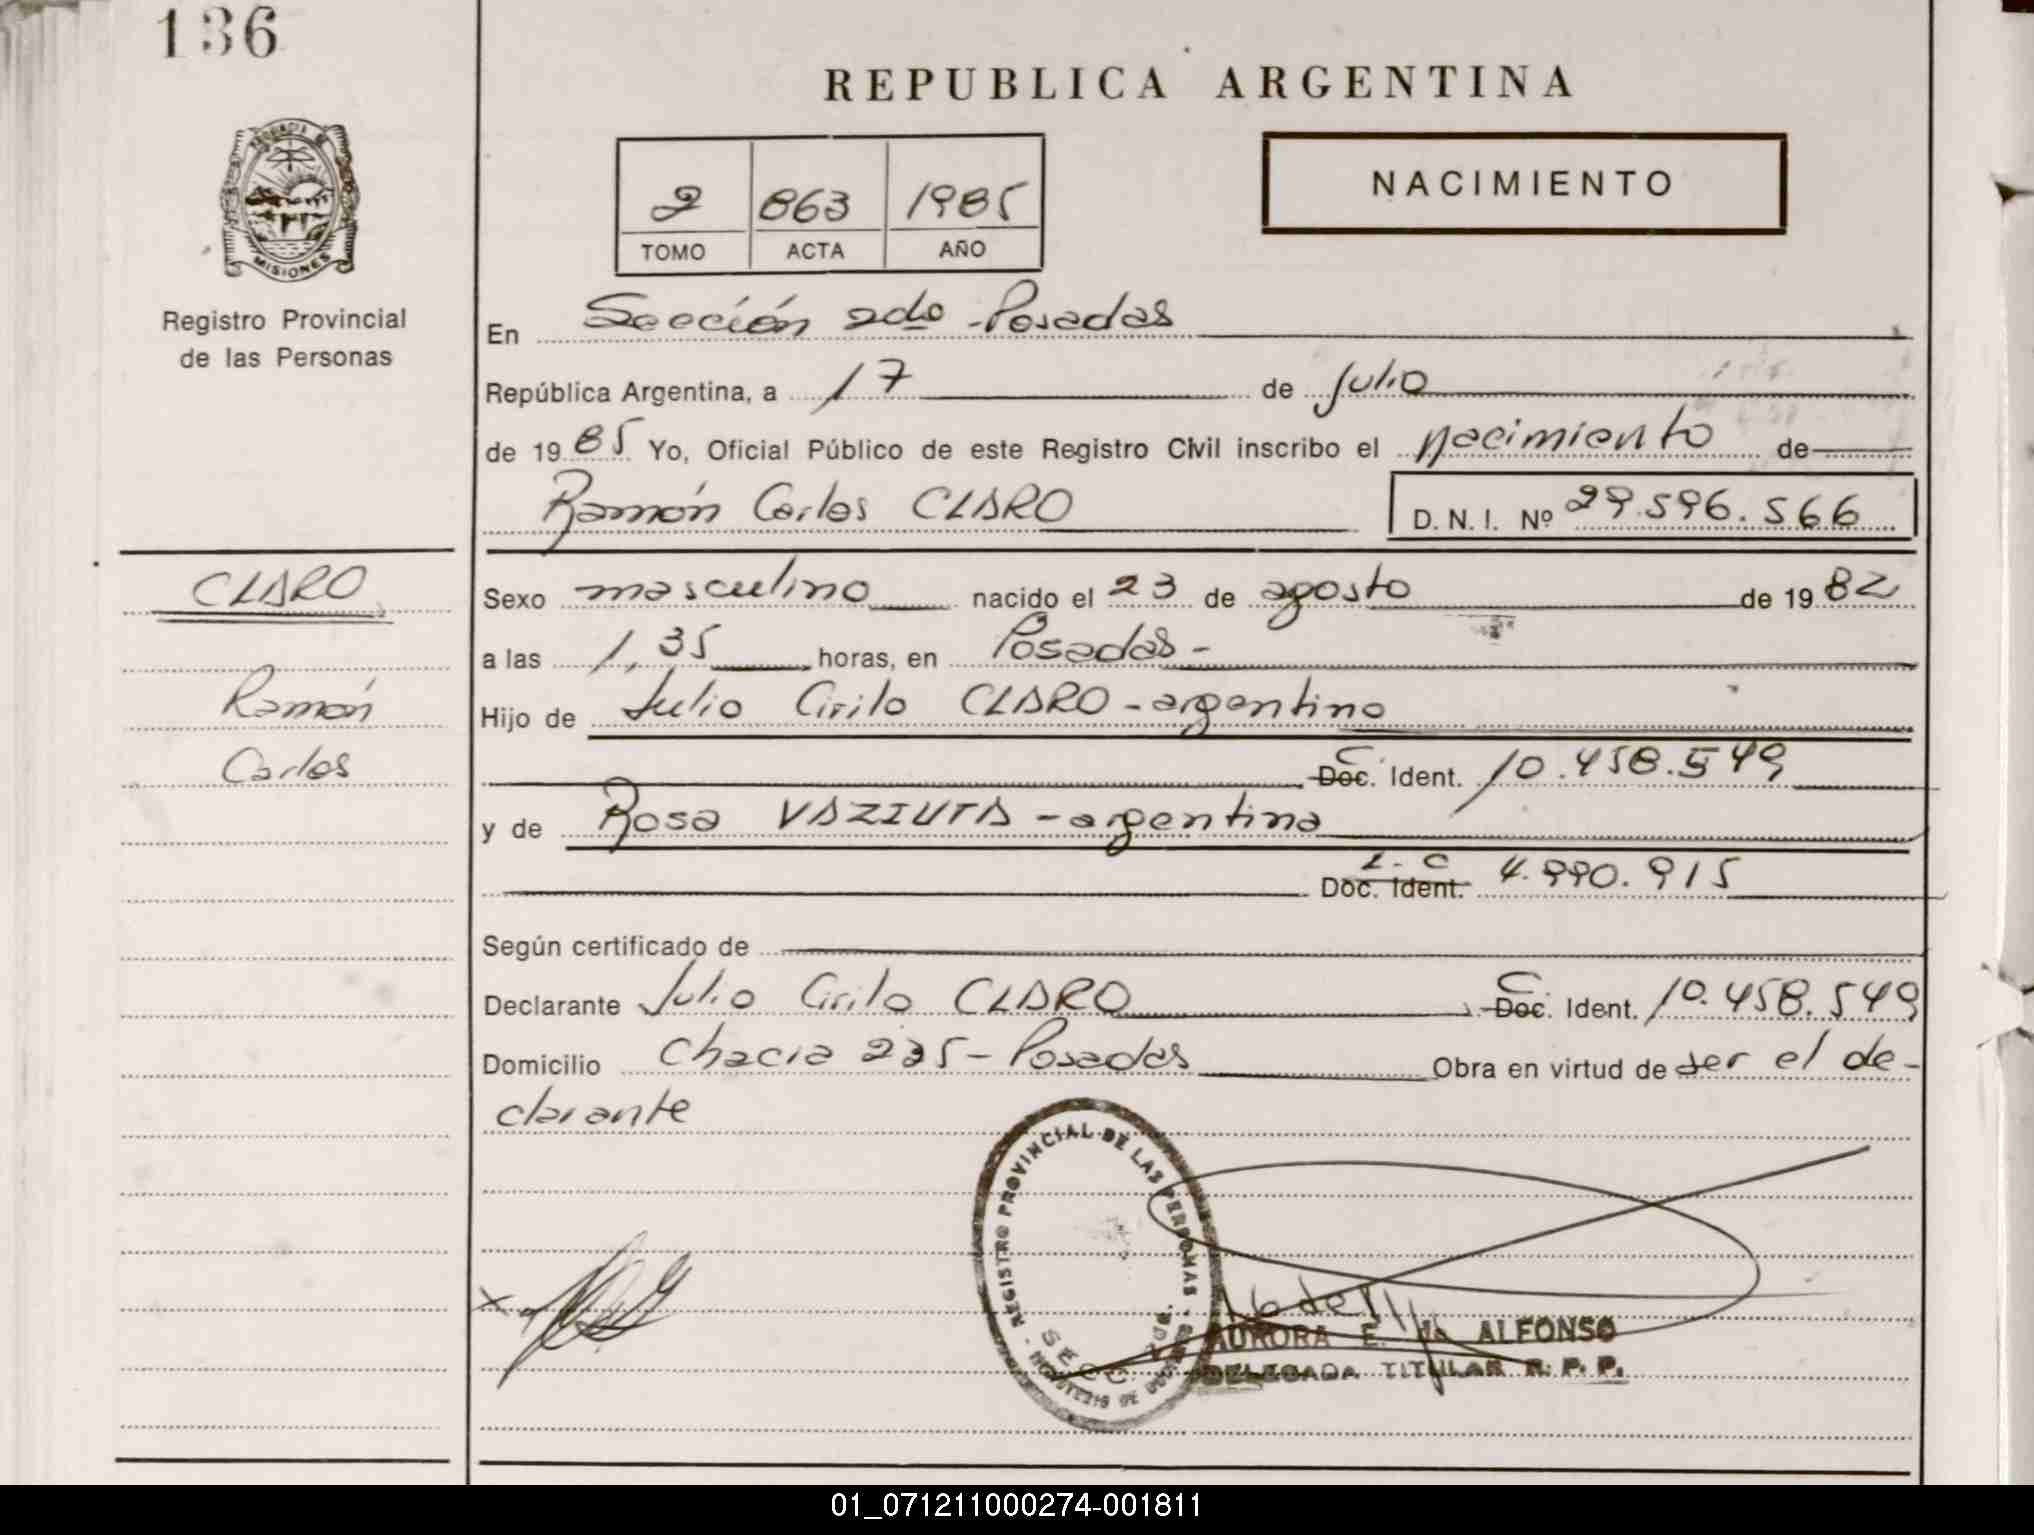 136
REPUBLICA ARGENTINA
2 863 1985
TOMO ACTA AÑO
NACIMIENTO
MISIONES
Registro Provincial
de las Personas
En Sección 2do - Posadas
República Argentina, a 17 de Julio
de 19 85 Yo, Oficial Público de este Registro Civil inscribo el nacimiento de
Ramón Carlos CLARO D. N. I. Nº 29.596.566
CLARO
Ramón
Carlos
Sexo masculino nacido el 23 de agosto de 19 82
a las 1,35 horas, en Posadas -
Hijo de Julio Cirilo CLARO - argentino
C. Doc. Ident. 10.458.549
y de Rosa VAZIUTA - argentina
L. C Doc. Ident. 4.990.915
Según certificado de
Declarante Julio Cirilo CLARO C. Doc. Ident. 10.458.549
Domicilio Chacia 225 - Posadas Obra en virtud de ser el de-
clarante
REGISTRO PROVINCIAL DE LAS PERSONAS
SECC.
AURORA E. de ALFONSO
DELEGADA TITULAR R. P. P.
01_071211000274-001811